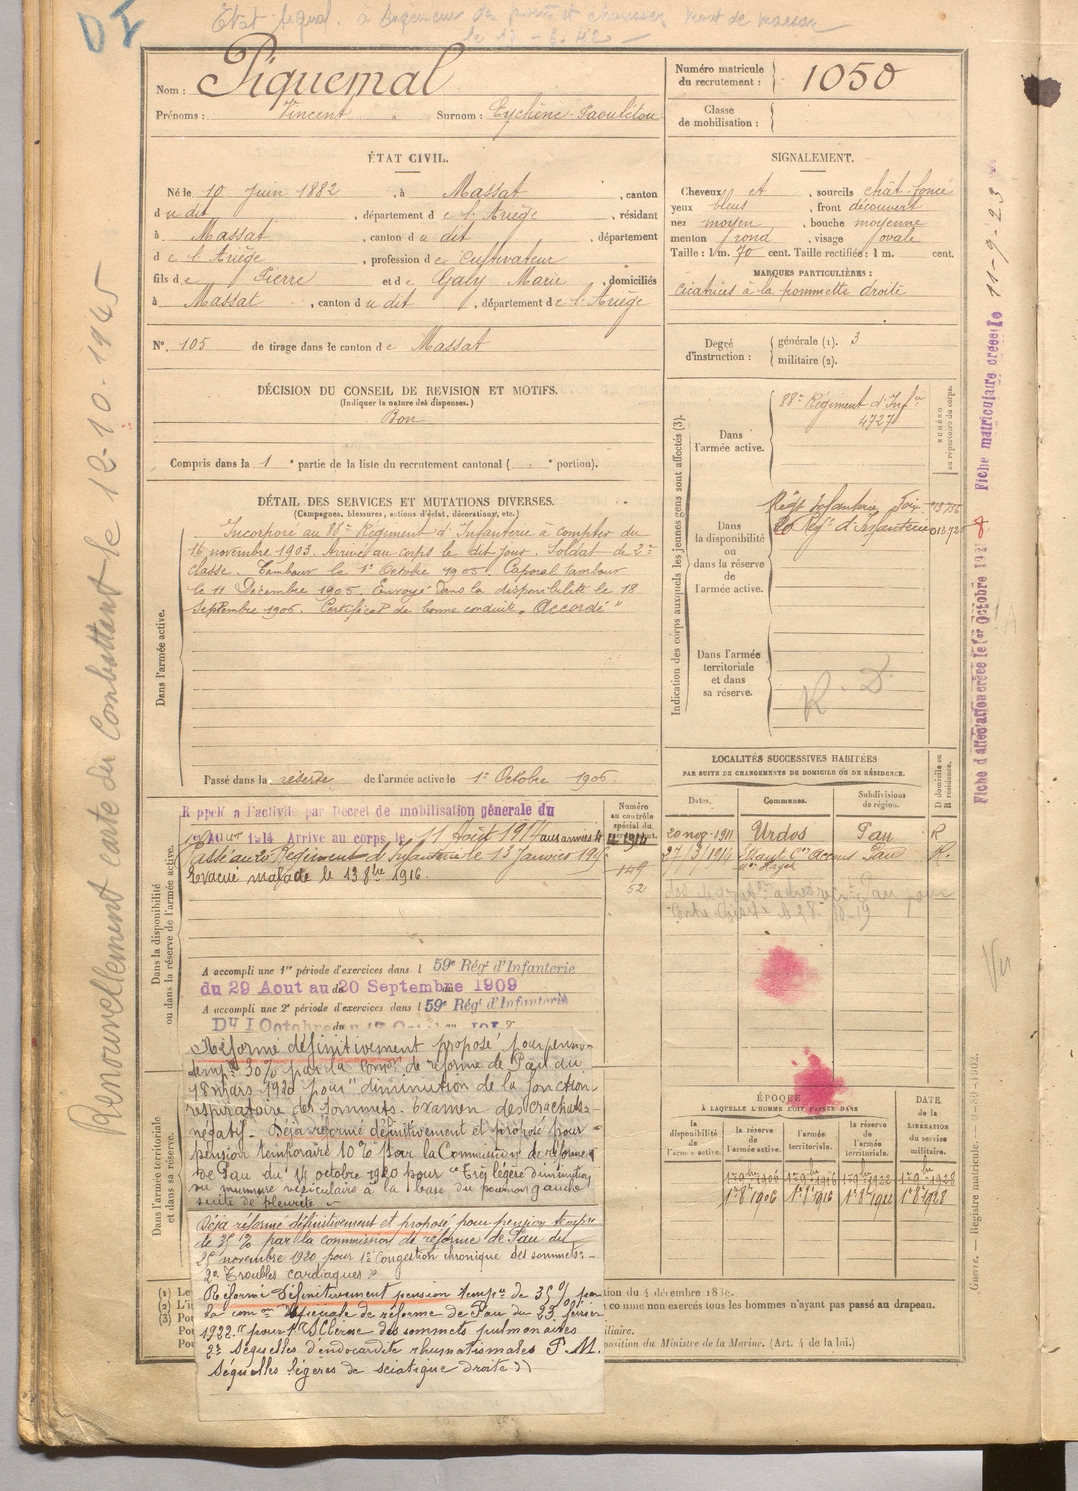 DI
Etat signal. a Ingenieur des ponts et chaussées Mont de Marsan
Nom : Piquemal
Prénoms : Vincent Surnom : Eychenne-Paoulétou
Numéro matricule du recrutement : 1050
Classe de mobilisation :
ÉTAT CIVIL.
Né le 10 Juin 1882, à Massat, canton
du dit, département de l'Ariège, résidant
à Massat, canton du dit, département
de l'Ariège, profession de Cultivateur
fils de Pierre et de Galy Marie, domiciliés
à Massat, canton du dit, département de l'Ariège
N° 105 de tirage dans le canton de Massat
SIGNALEMENT.
Cheveux et, sourcils chât. foncé
yeux bleus, front découvert
nez moyen, bouche moyenne
menton rond, visage ovale
Taille : 1 m. 70 cent. Taille rectifiée : 1 m. cent.
MARQUES PARTICULIÈRES :
Cicatrices à la pommette droite
Degré d'instruction : générale (1). 3
militaire (2).
DÉCISION DU CONSEIL DE REVISION ET MOTIFS.
(Indiquer la nature des dispenses.)
Bon
Compris dans la 1e partie de la liste du recrutement cantonal ( e portion).
DÉTAIL DES SERVICES ET MUTATIONS DIVERSES.
(Campagnes, blessures, actions d'éclat, décorations, etc.)
Dans l'armée active.
Incorporé au 88e Régiment d'Infanterie à compter du
16 novembre 1903. Arrivé au corps le dit jour. Soldat de 2e
classe. Tambour le 1er Octobre 1905. Caporal tambour
le 11 Décembre 1905. Envoyé dans la disponibilité le 18
Septembre 1906. Certificat de bonne conduite "Accordé"
Passé dans la réserve de l'armée active le 1er Octobre 1906
Indication des corps auxquels les jeunes gens sont affectés (3).
NUMÉRO au répertoire du corps.
Dans l'armée active.
88e Régiment d'Infie
4727
Dans la disponibilité ou dans la réserve de l'armée active.
Régt Infanterie Foix
20 Rgt d'Infanterie
Dans l'armée territoriale et dans sa réserve.
R. D.
Dans la disponibilité ou dans la réserve de l'armée active.
Rappelé a l'activité par Decret de mobilisation génerale du
1er AOUT 1914 Arrive au corps le 11 Août 1914 aux armées
Passé au 20 Régiment d'Infanterie le 13 Janvier 191
Evacué malade le 13 8bre 1916.
Numéro au contrôle spécial du
149
52
A accompli une 1re période d'exercices dans l 59e Régt d'Infanterie
du 29 Aout au 20 Septembre 1909
A accompli une 2e période d'exercices dans l 59e Régt d'Infanterie
LOCALITÉS SUCCESSIVES HABITÉES
PAR SUITE DE CHANGEMENTS DE DOMICILE OU DE RÉSIDENCE.
Dates. Communes. Subdivisions de région. D domicile ou R résidence.
20 nov. 1911 Urdos Pau R
27/3/1914 Etsaut Con Accous Pau R.
ÉPOQUE
À LAQUELLE L'HOMME DOIT PASSER DANS
la disponibilité de l'armée active. la réserve de l'armée active. l'armée territoriale. la réserve de l'armée territoriale. DATE de la LIBÉRATION du service militaire.
1er 8 1906 1er 8 1916 1er 8 1922 1er 8 1928
Dans l'armée territoriale et dans sa réserve.
Réformé définitivement proposé pour pension
tempre 30% par la Comon de réforme de Pau du
18 mars 1920 pour "diminution de la fonction
respiratoire des sommets. Examen des crachats
négatif. Déjà réformé définitivement et proposé pour
pension temporaire 10% par la Commission de réforme
de Pau du 14 octobre 1920 pour "Très légère diminution
du murmure vésiculaire à la base du poumon gauche
suite de pleurite"
Déjà réformé définitivement et proposé pour pension tempre
de 35% par la commission de réforme de Pau du
25 novembre 1920 pour 1° Congestion chronique des sommets
2° Troubles cardiaques"
Réformé définitivement pension tempre de 35% par
la comon spéciale de réforme de Pau du 23 février
1922. "pour 1° Sclérose des sommets pulmonaires
2° Séquelles d'endocardite rhumatismales P.M.
Séquelles légères de sciatique droite"
(1) Le
(2) L'i
(3) Pou
Pou
Pou
tion du 4 décembre 1889.
comme non exercés tous les hommes n'ayant pas passé au drapeau.
iliaire.
position du Ministre de la Marine. (Art. 4 de la loi.)
Renouvellement carte du Combattant le 12-10-1945
Fiche matriculaire créée le 11-9-23
Fiche d'affectation créée le 1er Octobre 192
Vu
Guerre. — Registre matricule.